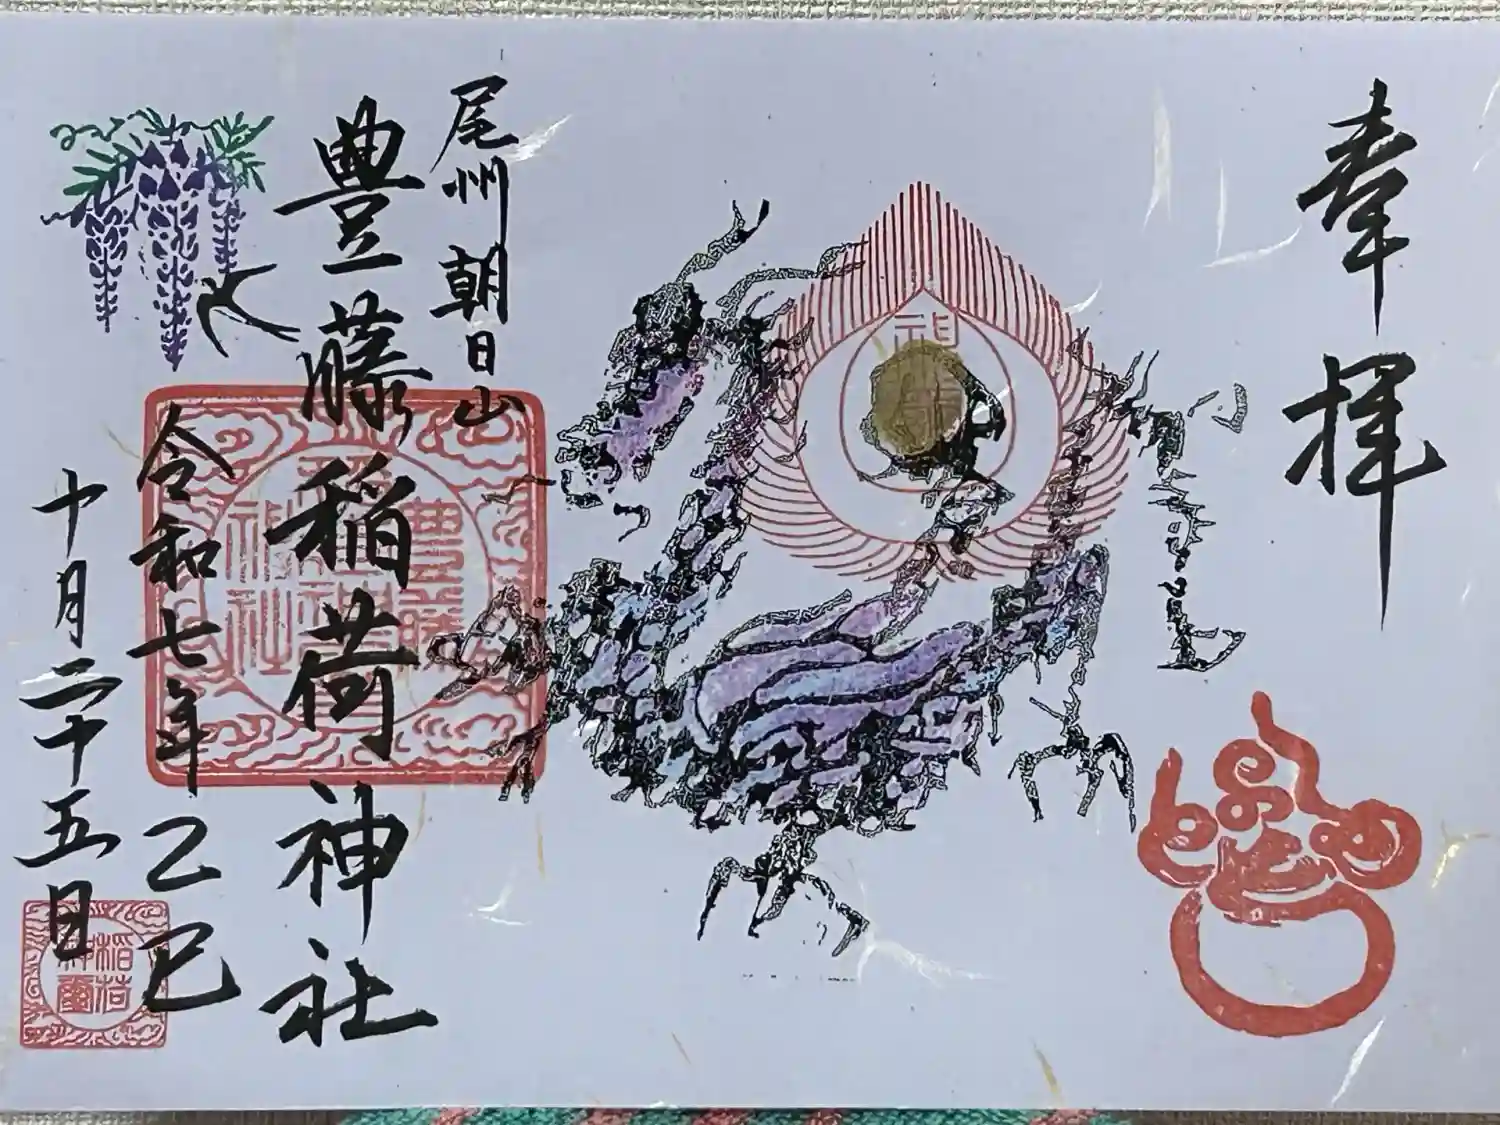 奉拝
尾州 朝日山
豊藤稲荷神社
令和七年乙巳
十月二十五日
稲荷
神璽